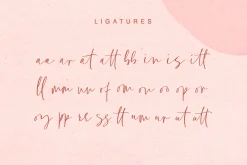 LIGATURES
aa ar at att bb in is itt
ll mm nn of om on oo op or
oy pp re ss tt um ur ut utt